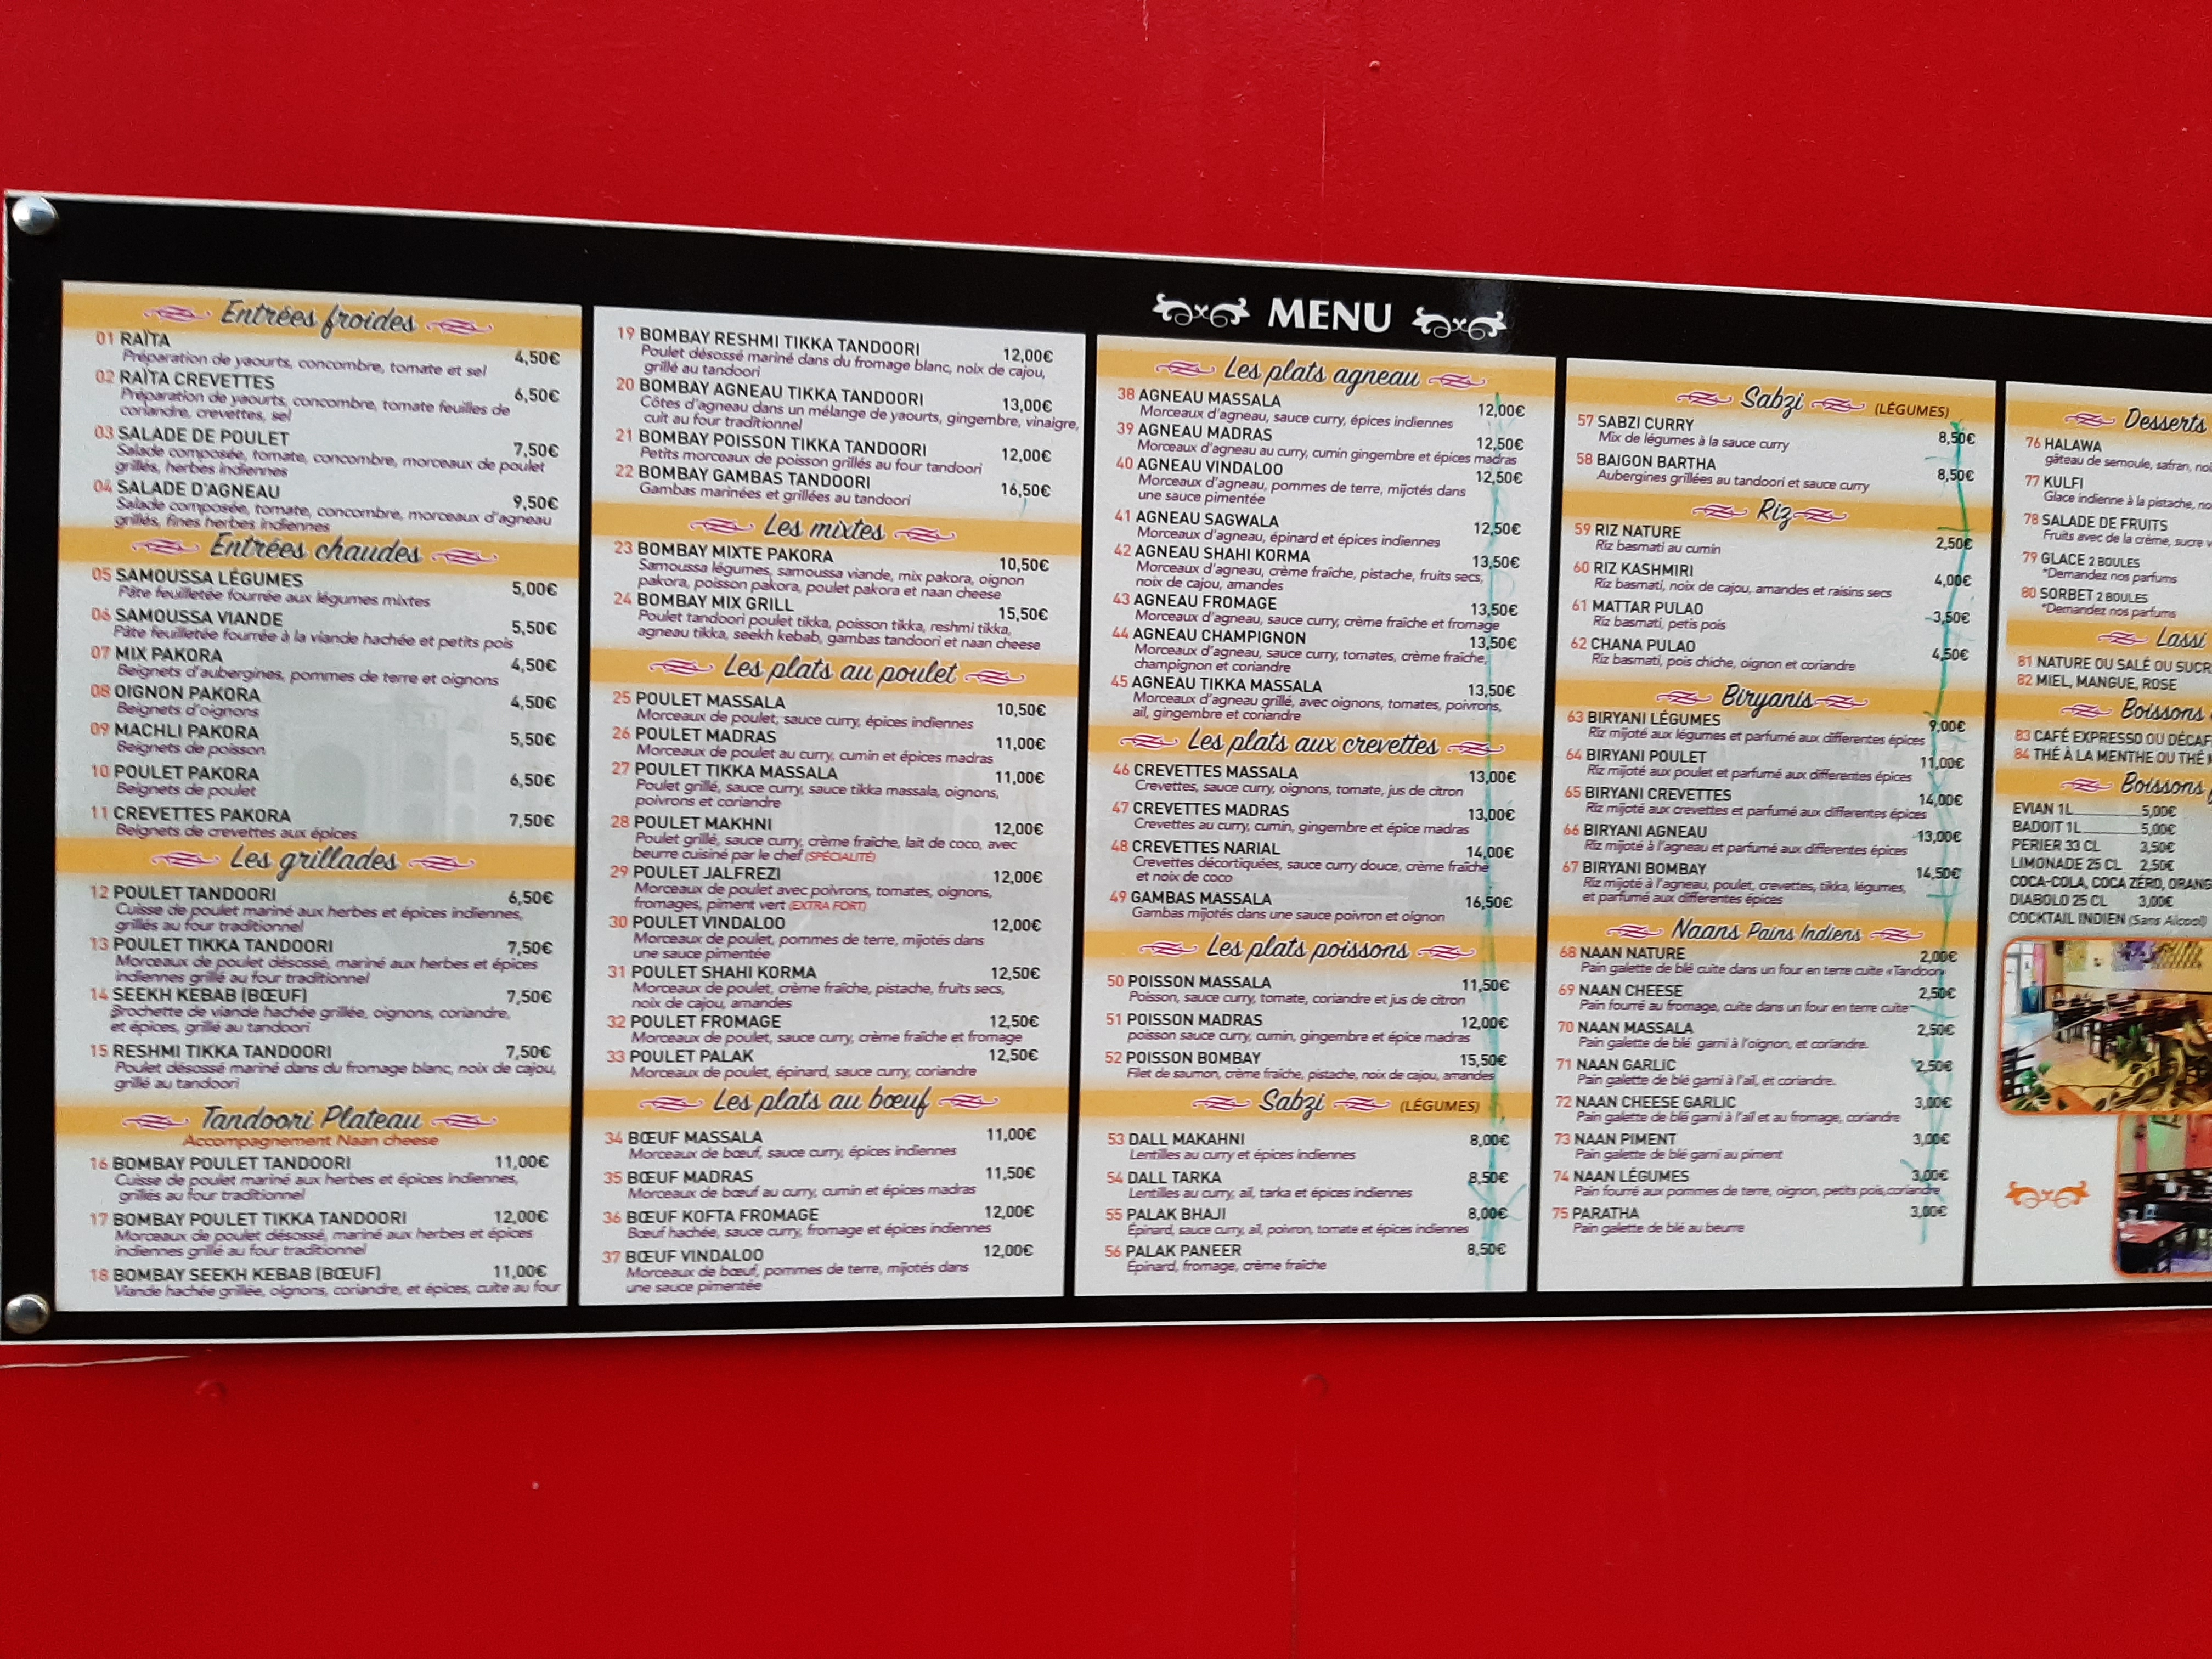 MENU
Entrées froides
01 RAÏTA 4,50€
Préparation de yaourts, concombre, tomate et sel
02 RAÏTA CREVETTES 6,50€
Préparation de yaourts, concombre, tomate feuilles de
coriandre, crevettes, sel
03 SALADE DE POULET 7,50€
Salade composée, tomate, concombre, morceaux de poulet
grillés, herbes indiennes
04 SALADE D'AGNEAU 9,50€
Salade composée, tomate, concombre, morceaux d'agneau
grillés, fines herbes indiennes
Entrées chaudes
05 SAMOUSSA LÉGUMES 5,00€
Pâte feuilletée fourrée aux légumes mixtes
06 SAMOUSSA VIANDE 5,50€
Pâte feuilletée fourrée à la viande hachée et petits pois
07 MIX PAKORA 4,50€
Beignets d'aubergines, pommes de terre et oignons
08 OIGNON PAKORA 4,50€
Beignets d'oignons
09 MACHLI PAKORA 5,50€
Beignets de poisson
10 POULET PAKORA 6,50€
Beignets de poulet
11 CREVETTES PAKORA 7,50€
Beignets de crevettes aux épices
Les grillades
12 POULET TANDOORI 6,50€
Cuisse de poulet mariné aux herbes et épices indiennes,
grillés au four traditionnel
13 POULET TIKKA TANDOORI 7,50€
Morceaux de poulet désossé, mariné aux herbes et épices
indiennes grillé au four traditionnel
14 SEEKH KEBAB (BŒUF) 7,50€
Brochette de viande hachée grillée, oignons, coriandre,
et épices, grillé au tandoori
15 RESHMI TIKKA TANDOORI 7,50€
Poulet désossé mariné dans du fromage blanc, noix de cajou,
grillé au tandoori
Tandoori Plateau
Accompagnement Naan cheese
16 BOMBAY POULET TANDOORI 11,00€
Cuisse de poulet mariné aux herbes et épices Indiennes,
grillés au four traditionnel
17 BOMBAY POULET TIKKA TANDOORI 12,00€
Morceaux de poulet désossé, mariné aux herbes et épices
indiennes grillé au four traditionnel
18 BOMBAY SEEKH KEBAB (BŒUF) 11,00€
Viande hachée grillée, oignons, coriandre, et épices, cuite au four
19 BOMBAY RESHMI TIKKA TANDOORI 12,00€
Poulet désossé mariné dans du fromage blanc, noix de cajou,
grillé au tandoori
20 BOMBAY AGNEAU TIKKA TANDOORI 13,00€
Côtes d'agneau dans un mélange de yaourts, gingembre, vinaigre,
cuit au four traditionnel
21 BOMBAY POISSON TIKKA TANDOORI 12,00€
Petits morceaux de poisson grillés au four tandoori
22 BOMBAY GAMBAS TANDOORI 16,50€
Gambas marinées et grillées au tandoori
Les mixtes
23 BOMBAY MIXTE PAKORA 10,50€
Samoussa légumes, samoussa viande, mix pakora, oignon
pakora, poisson pakora, poulet pakora et naan cheese
24 BOMBAY MIX GRILL 15,50€
Poulet tandoori poulet tikka, poisson tikka, reshmi tikka,
agneau tikka, seekh kebab, gambas tandoori et naan cheese
Les plats au poulet
25 POULET MASSALA 10,50€
Morceaux de poulet, sauce curry, épices indiennes
26 POULET MADRAS 11,00€
Morceaux de poulet au curry, cumin et épices madras
27 POULET TIKKA MASSALA 11,00€
Poulet grillé, sauce curry, sauce tikka massala, oignons,
poivrons et coriandre
28 POULET MAKHNI 12,00€
Poulet grillé, sauce curry, crème fraîche, lait de coco, avec
beurre cuisiné par le chef (SPÉCIALITÉ)
29 POULET JALFREZI 12,00€
Morceaux de poulet avec poivrons, tomates, oignons,
fromages, piment vert (EXTRA FORT)
30 POULET VINDALOO 12,00€
Morceaux de poulet, pommes de terre, mijotés dans
une sauce pimentée
31 POULET SHAHI KORMA 12,50€
Morceaux de poulet, crème fraîche, pistache, fruits secs,
noix de cajou, amandes
32 POULET FROMAGE 12,50€
Morceaux de poulet, sauce curry, crème fraîche et fromage
33 POULET PALAK 12,50€
Morceaux de poulet, épinard, sauce curry, coriandre
Les plats au bœuf
34 BŒUF MASSALA 11,00€
Morceaux de bœuf, sauce curry, épices indiennes
35 BŒUF MADRAS 11,50€
Morceaux de bœuf au curry, cumin et épices madras
36 BŒUF KOFTA FROMAGE 12,00€
Bœuf hachée, sauce curry, fromage et épices indiennes
37 BŒUF VINDALOO 12,00€
Morceaux de bœuf, pommes de terre, mijotés dans
une sauce pimentée
Les plats agneau
38 AGNEAU MASSALA 12,00€
Morceaux d'agneau, sauce curry, épices indiennes
39 AGNEAU MADRAS 12,50€
Morceaux d'agneau au curry, cumin gingembre et épices madras
40 AGNEAU VINDALOO 12,50€
Morceaux d'agneau, pommes de terre, mijotés dans
une sauce pimentée
41 AGNEAU SAGWALA 12,50€
Morceaux d'agneau, épinard et épices indiennes
42 AGNEAU SHAHI KORMA 13,50€
Morceaux d'agneau, crème fraîche, pistache, fruits secs,
noix de cajou, amandes
43 AGNEAU FROMAGE 13,50€
Morceaux d'agneau, sauce curry, crème fraîche et fromage
44 AGNEAU CHAMPIGNON 13,50€
Morceaux d'agneau, sauce curry, tomates, crème fraîche,
champignon et coriandre
45 AGNEAU TIKKA MASSALA 13,50€
Morceaux d'agneau grillé, avec oignons, tomates, poivrons,
ail, gingembre et coriandre
Les plats aux crevettes
46 CREVETTES MASSALA 13,00€
Crevettes, sauce curry, oignons, tomate, jus de citron
47 CREVETTES MADRAS 13,00€
Crevettes au curry, cumin, gingembre et épice madras
48 CREVETTES NARIAL 14,00€
Crevettes décortiquées, sauce curry douce, crème fraîche
et noix de coco
49 GAMBAS MASSALA 16,50€
Gambas mijotés dans une sauce poivron et oignon
Les plats poissons
50 POISSON MASSALA 11,50€
Poisson, sauce curry, tomate, coriandre et jus de citron
51 POISSON MADRAS 12,00€
poisson sauce curry, cumin, gingembre et épice madras
52 POISSON BOMBAY 15,50€
Filet de saumon, crème fraîche, pistache, noix de cajou, amandes
Sabzi (LÉGUMES)
53 DALL MAKAHNI 8,00€
Lentilles au curry et épices indiennes
54 DALL TARKA 8,50€
Lentilles au curry, ail, tarka et épices indiennes
55 PALAK BHAJI 8,00€
Épinard, sauce curry, ail, poivron, tomate et épices indiennes
56 PALAK PANEER 8,50€
Épinard, fromage, crème fraîche
Sabzi (LÉGUMES)
57 SABZI CURRY 8,50€
Mix de légumes à la sauce curry
58 BAIGON BARTHA 8,50€
Aubergines grillées au tandoori et sauce curry
Riz
59 RIZ NATURE 2,50€
Riz basmati au cumin
60 RIZ KASHMIRI 4,00€
Riz basmati, noix de cajou, amandes et raisins secs
61 MATTAR PULAO 3,50€
Riz basmati, petis pois
62 CHANA PULAO 4,50€
Riz basmati, pois chiche, oignon et coriandre
Biryanis
63 BIRYANI LÉGUMES 9,00€
Riz mijoté aux légumes et parfumé aux differentes épices
64 BIRYANI POULET 11,00€
Riz mijoté aux poulet et parfumé aux differentes épices
65 BIRYANI CREVETTES 14,00€
Riz mijoté aux crevettes et parfumé aux differentes épices
66 BIRYANI AGNEAU 13,00€
Riz mijoté à l'agneau et parfumé aux differentes épices
67 BIRYANI BOMBAY 14,50€
Riz mijoté à l'agneau, poulet, crevettes, tikka, légumes,
et parfumé aux differentes épices
Naans Pains Indiens
68 NAAN NATURE 2,00€
Pain galette de blé cuite dans un four en terre cuite «Tandoor»
69 NAAN CHEESE 2,50€
Pain fourré au fromage, cuite dans un four en terre cuite
70 NAAN MASSALA 2,50€
Pain galette de blé garni à l'oignon, et coriandre.
71 NAAN GARLIC 2,50€
Pain galette de blé garni à l'ail, et coriandre.
72 NAAN CHEESE GARLIC 3,00€
Pain galette de blé garni à l'ail et au fromage, coriandre
73 NAAN PIMENT 3,00€
Pain galette de blé garni au piment
74 NAAN LÉGUMES 3,00€
Pain fourré aux pommes de terre, oignon, petits pois,coriandre
75 PARATHA 3,00€
Pain galette de blé au beurre
Desserts
76 HALAWA
gâteau de semoule, safran, noi
77 KULFI
Glace indienne à la pistache, no
78 SALADE DE FRUITS
Fruits avec de la crème, sucre v
79 GLACE 2 BOULES
*Demandez nos parfums
80 SORBET 2 BOULES
*Demandez nos parfums
Lassi
81 NATURE OU SALÉ OU SUCR
82 MIEL, MANGUE, ROSE
Boissons
83 CAFÉ EXPRESSO OU DÉCAF
84 THÉ À LA MENTHE OU THÉ
Boissons
EVIAN 1L 5,00€
BADOIT 1L 5,00€
PERIER 33 CL 3,50€
LIMONADE 25 CL 2,50€
COCA-COLA, COCA ZÉRO, ORANG
DIABOLO 25 CL 3,00€
COCKTAIL INDIEN (Sans Alcool)